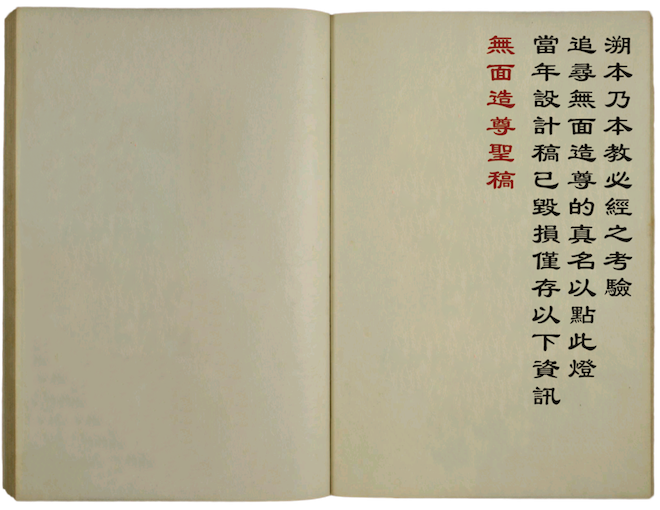 溯本乃本教必經之考驗
追尋無面造尊的真名以點此燈
當年設計稿已毀損僅存以下資訊
無面造尊聖稿